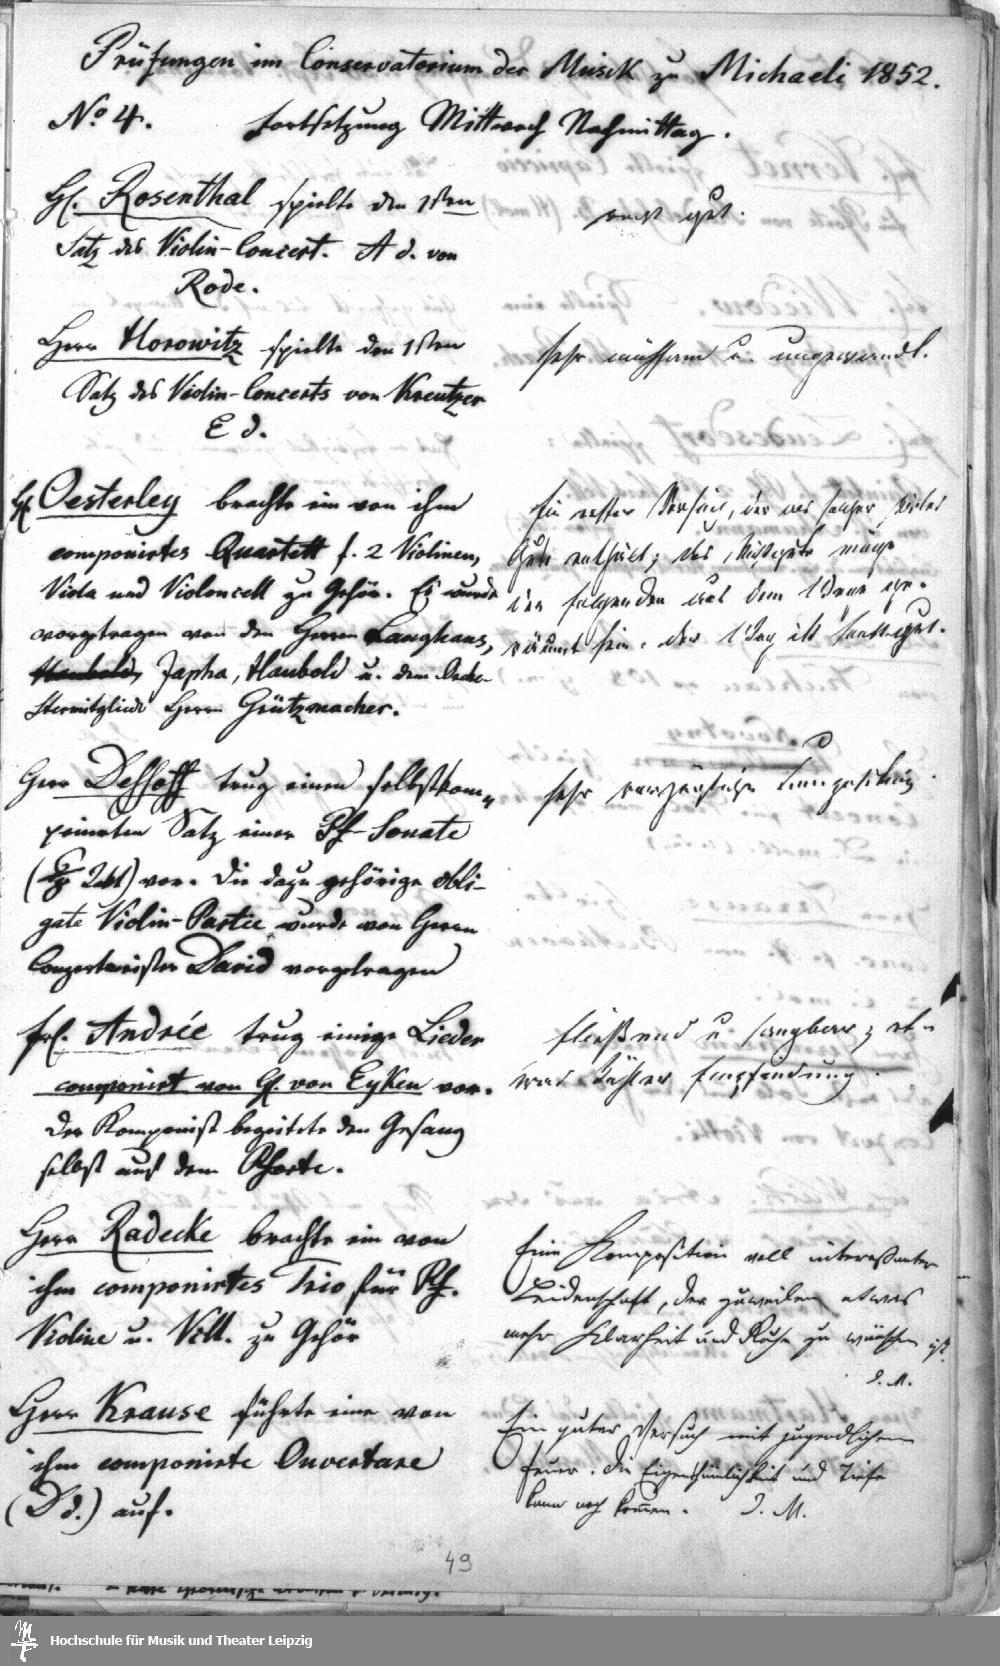 Prüfungen im Conservatorium der Musik zu Michaeli 1852.
No 4. Fortsetzung Mittwoch Nachmittag.
H. Rosenthal spielte den 1sten
Satz des Violin-Concert. A d. von
Rode.
recht gut.
Herr Horowitz spielte den 1sten
Satz des Violin-Concerts von Kreutzer
E d.
sehr mühsam u. ungewandt.
H. Oesterley brachte ein von ihm
componirtes Quartett f. 2 Violinen,
Viola und Violoncell zu Gehör. Es wurde
vorgetragen von den Herren Langhans,
Haubold, Japha, Haubold u. dem Orche-
stermitgliede Herrn Grützmacher.
Ein erster Versuch, der als solcher vieles
Gute enthält; das
den folgenden aus dem Wege ge-
räumt sein. der Weg ist sonst gut.
Herr Dessoff trug einen selbstkom-
ponirten Satz einer Pf-Sonate
vor. Die dazu gehörige obli-
gate Violin-Partie wurde von Herrn
Conzertmeister David vorgetragen
sehr Composition
Frl. Andrée trug einige Lieder
componirt von H. von Eyken vor.
Der Komponist begleitete den Gesang
selbst auf dem Pforte.
fließend u. sangbar; et-
was kühler Empfindung.
Herr Radecke brachte ein von
ihm componirtes Trio für Pf.
Violine u. Vcll. zu Gehör
Eine Komposition voll interessanter
Leidenschaft, der zuweilen etwas
mehr Klarheit und Ruhe zu wünschen ist.
J. M.
Herr Krause führte eine von
ihm componirte Ouverture
(D d.) auf.
Ein guter Versuch mit jugendlichem
Feuer. Die Eigenthümlichkeit und Tiefe
kann noch kommen. J. M.
49
Hochschule für Musik und Theater Leipzig